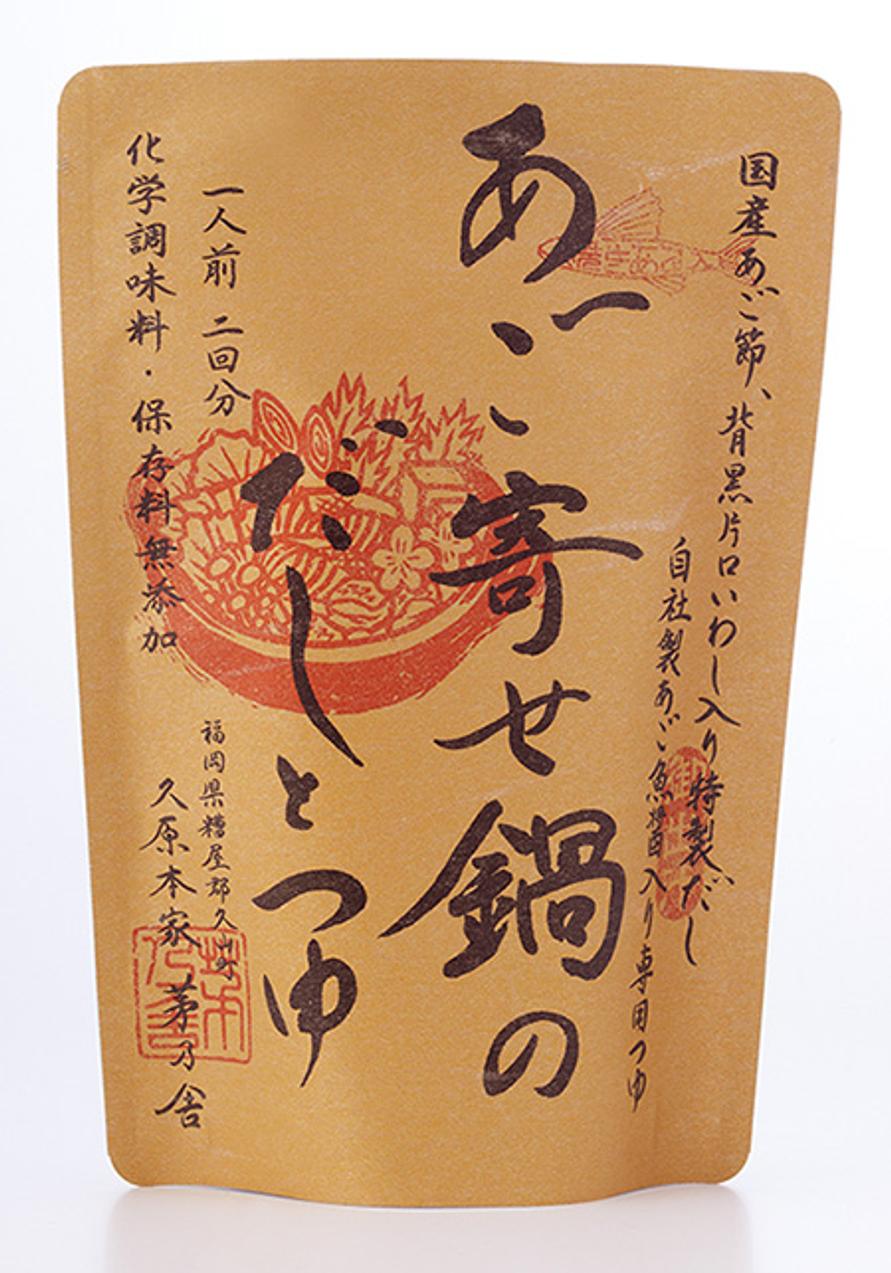 国産あご節、背黒片口いわし入り特製だし
自社製あご魚醤入り専用つゆ
あご寄せ鍋の
だしとつゆ
一人前 二回分
化学調味料・保存料無添加
福岡県糟屋郡久山町
久原本家 茅乃舎